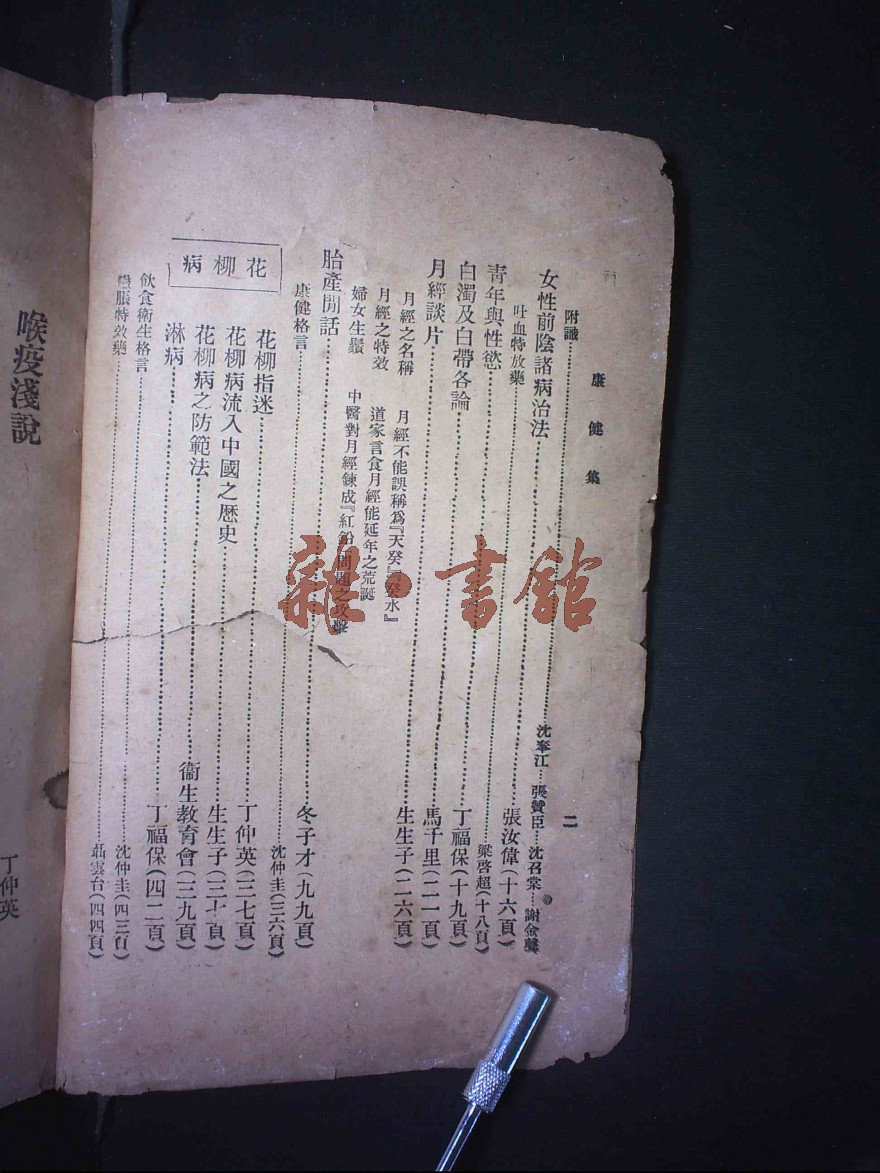 康健集 二
附識……沈奉江…張贊臣…沈召棠…謝金聲
女性前陰諸病治法……張汝偉(十六頁)
吐血特放藥……梁啓超(十八頁)
青年與性慾……丁福保(十九頁)
白濁及白帶各論……馬千里(二一頁)
月經談片……生生子(二六頁)
月經之名稱 月經不能誤稱爲『天癸』『癸水』
月經之特效 道家言食月經能延年之荒誕
婦女生鬚 中醫對月經鍊成『紅鉛』問題之攻擊
胎產閒話……冬子才(九九頁)
康健格言……沈仲圭(三六頁)
花柳病
花柳指迷……丁仲英(三七頁)
花柳病流入中國之歷史……生生子(三十頁)
花柳病之防範法……衞生教育會(三九頁)
淋病……丁福保(四二頁)
飲食衞生格言……沈仲圭(四三頁)
脹特效藥……聶雲台(四四頁)
喉疫淺說
丁仲英
雜·書館